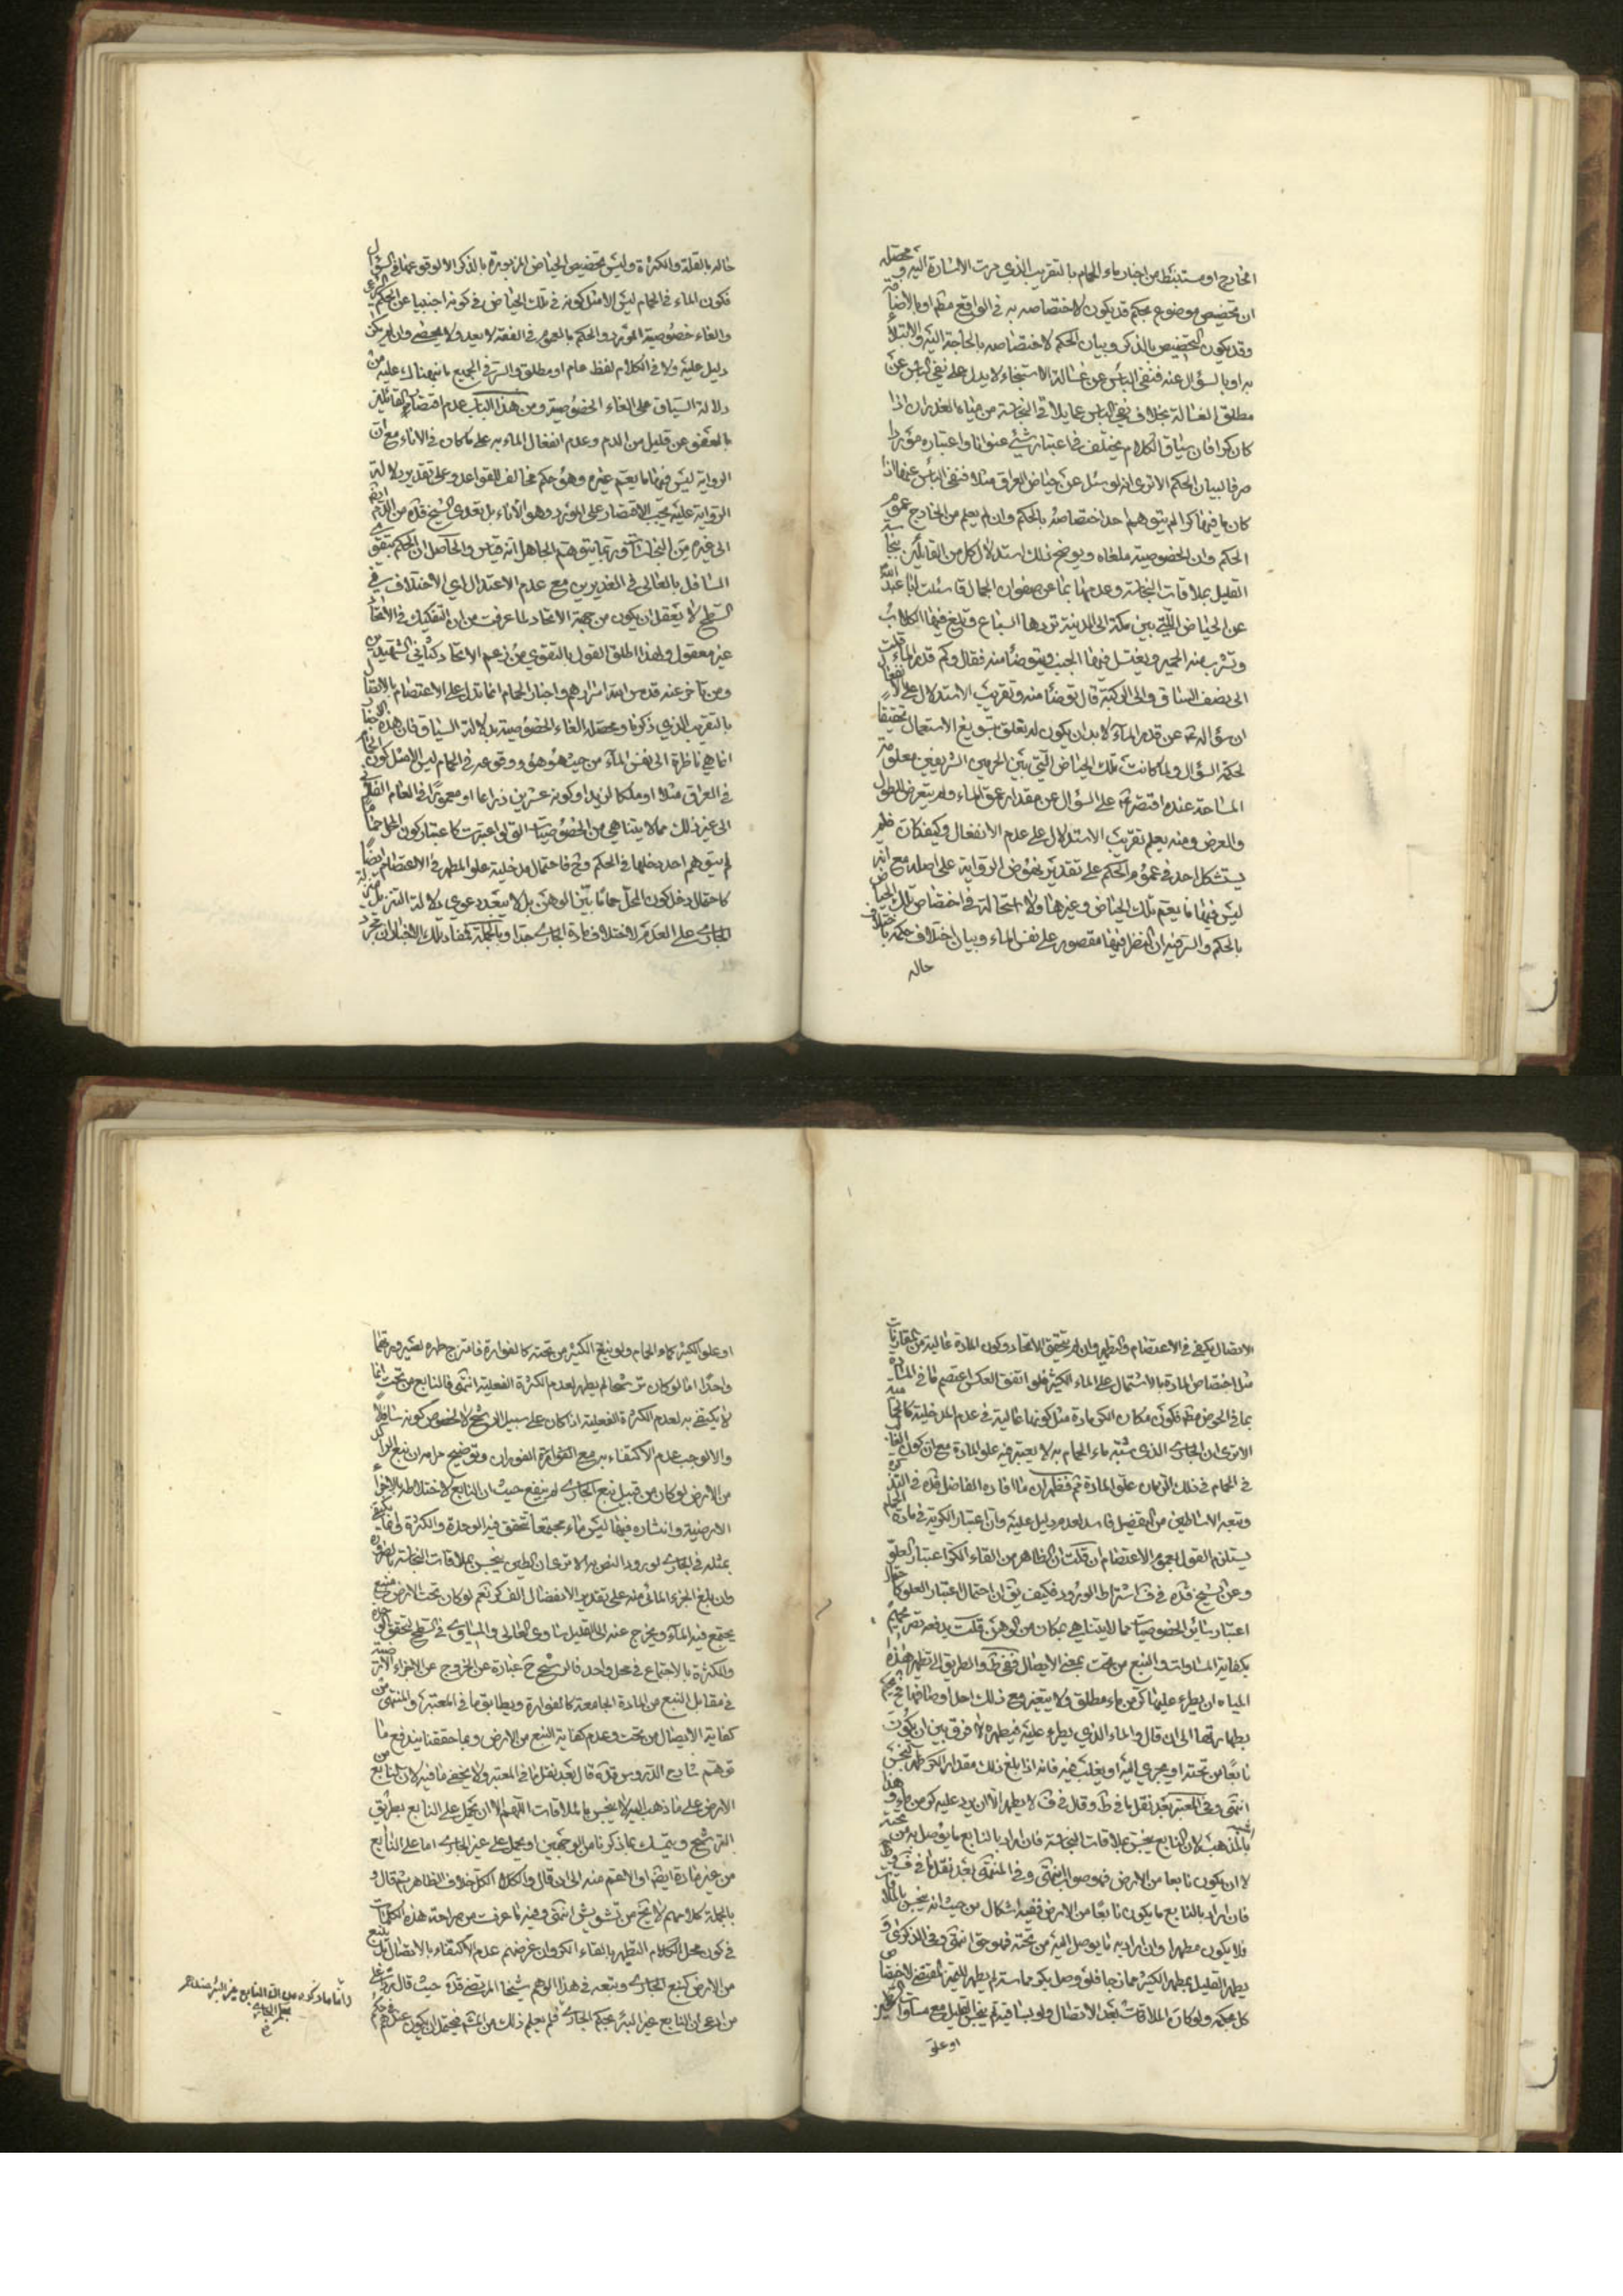 الخارج او مستنبط من اخبار ماء الحمام بالتقريب الذي جرت الاشارة اليه ومحصله
ان تخصيص موضوع بحكم قد يكون لاختصاصه به في الواقع مطم او بالاضافة
وقد يكون التخصيص بالذكر وبيان الحكم لاختصاصه بالحاجة اليه والابتلاء
به او بالسؤال عنه فنفى الباس عن غسالة الاستنجاء لا يدل على نفى الباس عن
مطلق الغسالة بخلاف نفي الباس عما يلاقى النجاسة من مياه الغدران اذا
كان كرا فان سياق الكلام يختلف في اعتبار شئ عنوانا واعتباره موردا
صرفا لبيان الحكم الا ترى انه لو سئل عن حياض العراق مثلا فنفى الباس عنها اذا
كان ما فيها كرا لم يتوهم احد اختصاصه بالحكم وان لم يعلم من الخارج عموم
الحكم وان الخصوصية ملغاة ويوضح ذلك استدلال كل من القائلين بنجاسة
القليل بملاقات النجاسة وعدمها بما عن صفوان الجمال قا سئلت ابا عبد الله
عن الحياض التي بين مكة الى المدينة تردها السباع وتلغ فيها الكلاب
وتشرب منه الحمير ويغتسل فيها الجنب ويتوضأ منه فقال وكم قدر الماء قلت
الى نصف الساق والى الركبة قال توضأ منه وتقريب الاستدلال على الانفعال
ان سؤاله عن قدر الماء لابد ان يكون له تعلق بتسويغ الاستعمال تحقيقا
لحكمة السؤال ولما كانت تلك الحياض التي بين الحرمين الشريفين معلومة
المساحة عنده اقتصر على السؤال عن مقدار عمق الماء ولم يتعرض للطول
والعرض ومنه يعلم تقريب الاستدلال على عدم الانفعال وكيفكان فلم
يستشكل احد في عموم الحكم على تقدير نهوض الرواية على اصله مع انه
ليس فيها ما يعم تلك الحياض وغيرها ولا استحالة في اختصاص تلك الحياض
بالحكم والسر فيه ان النظر فيها مقصور على نفس الماء وبيان اختلاف حكمه باختلاف
حاله
حاله بالقلة والكثرة وليس تخصيص الحياض المزبورة بالذكر الا لوقوعها في السؤال
فكون الماء في الحمام ليس الا مثل كونه في تلك الحياض في كونه اجنبيا عن الحكم الشرعى
والغاء خصوصية المورد والحكم بالعموم في الفقه لا يعد ولا يحصى وان لم يكن
دليل عليه ولا في الكلام لفظ عام او مطلق والسر في الجميع ما نبهناك عليه من
دلالة السياق على الغاء الخصوصية ومن هذا الباب عدم اقتصار القائلين
بالعفو عن قليل من الدم وعدم انفعال الماء به على ما كان في الاناء مع ان
الرواية ليس فيها ما يعم غيره وهو حكم مخالف للقواعد وعلى تقدير دلالة
الرواية عليه يجب الاقتصار على المورد وهو الاناء بل تعدى الشيخ قده من الدم ايضا
الى غيره من النجاسات وربما يتوهم الجاهل انه قياس والحاصل ان الحكم بتقوى
السافل بالعالى في الغديرين مع عدم الاعتدال اعى الاختلاف في
السطح لا يعقل ان يكون من جهة الاتحاد لما عرفت من ان التفكيك في الاتحاد
غير معقول ولهذا اطلق القول بالتقوي من زعم الاتحاد كثانى الشهيدين
ومن تاخر عنه قدس الله اسرارهم واخبار الحمام انما تدل على الاعتصام بالاتصال
بالتقريب الذي ذكرنا ومحصله الغاء الخصوصية بدلالة السياق فان هذه الاخبار
انما هي ناظرة الى نفس الماء من حيث هو هو ووقوعه في الحمام ليس الا مثل كون الحمام
في العراق مثلا او ملكا لزيد او كونه عشرين ذراعا او معمورا في العام الفلانى
الى غير ذلك مما لا يتناهى من الخصوصيات التي لو اعتبرت كاعتبار كون المحل حماما
لم يتوهم احد دخلها في الحكم وح فاحتمال مدخلية علو المطهر في الاعتصام ايضا
كاحتمال دخل كون المحل حماما بين الوهن بل لا يبعد دعوى دلالة التنزيل منزلة
الجارى على العدم لاختلاف مادة الجارى جدا وبالجملة فمفاد تلك الاخبار ان مجرد
الاتصال يكفى في الاعتصام والتطهير وان لم يتحقق الاتحاد وكون المادة عالية من المقارنات
مثل اختصاص المادة بالاشتمال على الماء الكثير فلو اتفق العكس اعتصم ما في المادة
بما في الحوض مطم فكون مكان الكر مادة مثل كونها عالية في عدم المدخلية كالحمامية
الا ترى ان الجارى الذى شبه ماء الحمام به لا يعتبر فيه علو المادة مع ان كون الغالب
في الحمام في ذلك الزمان علو المادة ثم فظهر ان ما افاده الفاضل قده في التذكرة
وتبعه الاساطين من التفصيل فاسد لعدم دليل عليه وان اعتبار الكرية في مادة الحمام
يستلزم القول بعموم الاعتصام ان قلت ان الظاهر من القاء الكر اعتبار العلو
وعن الشيخ قده في ف اشتراط الورود فكيف يق ان احتمال اعتبار العلو كاحتمال
اعتبار سائر الخصوصيات مما لا يتناهى بمكان من الوهن قلت يدفعه تصريحهم
بكفاية المساوات والنبع من تحت بمعنى الايصال ففى ط والطريق الى تطهير هذه
المياه ان يطرء عليها كر من ماء مطلق ولا يتغير مع ذلك احد اوصافها فح يحكم
بطهارتها الى ان قال والماء الذي يطرء عليه فيطهره لا فرق بين ان يكون
نابعا من تحته او يجرى اليه او يغلب فيه فانه اذا بلغ ذلك مقدار الكر طهر النجس
انتهى وفي المعتبر بعد نقل ما في ط وقال في ف لا يطهر الا ان يرد عليه كر من ماء وهذا
اشبه بالمذهب لان النابع ينجس بملاقات النجاسة فان اراد بالنابع ما يوصل به من تحته
لا ان يكون نابعا من الارض فهو صواب انتهى وفي المنتهى بعد نقل ما في ف وط
فان اراد بالنابع ما يكون نابعا من الارض ففيه اشكال من حيث انه ينجس بالملاقات
فلا يكون مطهرا وان اراد به ما يوصل اليه من تحته فهو حق انتهى وفي الذكرى و
يطهر القليل بمطهر الكثير ممازجا فلو وصل بكر مماسة لم يطهر للتميز المقتضى لاختصاص
كل بحكمه ولو كان الملاقات بعد الاتصال ولو بساقية لم ينجس القليل مع مساوات السطحين
او علو
او علو الكثير كماء الحمام ولو نبع الكثير من تحته كالفوارة فامتزج طهره لصيرورتهما
واحدا اما لو كان ترشحا لم يطهر لعدم الكثرة الفعلية انتهى فالنابع من تحت انما
لا يكتفى به لعدم الكثرة الفعلية اذا كان على سبيل الترشح لا لخصوص كونه سافلا
والا لوجب عدم الاكتفاء به مع الفوارة الفوران وتوضيح مرامه ان نبع المراد
من الارض لو كان من قبيل نبع الجارى لم ينفع حيث ان النابع لاختلاطه بالاجزاء
الارضية وانتشاره فيها ليس ماء مجتمعا تتحقق فيه الوحدة والكثرة وانما يكتفى
بمثله في الجارى لورود النص به الا ترى ان الطين ينجس بملاقات النجاسة بالضرورة
وان بلغ الجزء المائى منه على تقدير الانفصال الف كر نعم لو كان تحت الارض منبع
يجتمع فيه الماء ويخرج عنه الى القليل ساوى العالى والمساوى في السطح لتحقق الوحدة
والكثرة بالاجتماع في محل واحد فالترشح ح عبارة عن الخروج عن الاجزاء الارضية
في مقابل النبع من المادة الجامعة كالفوارة ويطابق ما في المعتبر والمنتهى من
كفاية الايصال من تحت وعدم كفاية النبع من الارض وبما حققنا يندفع ما
توهم شارح الدروس قده قال بعد نقل ما في المعتبر ولا يخفى ما فيه لان النابع من
الارض على ما ذهب اليه لا ينجس بالملاقات اللهم الا ان يحمل على النابع بطريق
الترشح ويتمسك بما ذكرنا من الوجهين او يحمل على غير الجارى اما على النابع
من غير مادة ايضا او الاعم منه الى ان قال والكل الكل خلاف الظاهر ثم قال و
بالجملة كلامهم لا يخ من تشويش انتهى وفيه ما عرفت من صراحة هذه الكلمات
في كون محل الكلام التطهير بالقاء الكر وان غرضهم عدم الاكتفاء بالاتصال بالنبع
من الارض كنبع الجارى وتبعه في هذا الوهم شيخنا المرتضى قده حيث قال رد على
من ادعى ان النابع غير البئر بحكم الجارى فلم يعلم ذلك من الشيخ فيحتمل ان يكون عنده في حكم